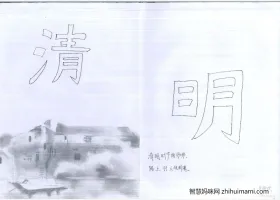 清
明
清明时节雨纷纷,
路上行人欲断魂。
智慧妈咪网 zhihuimami.com